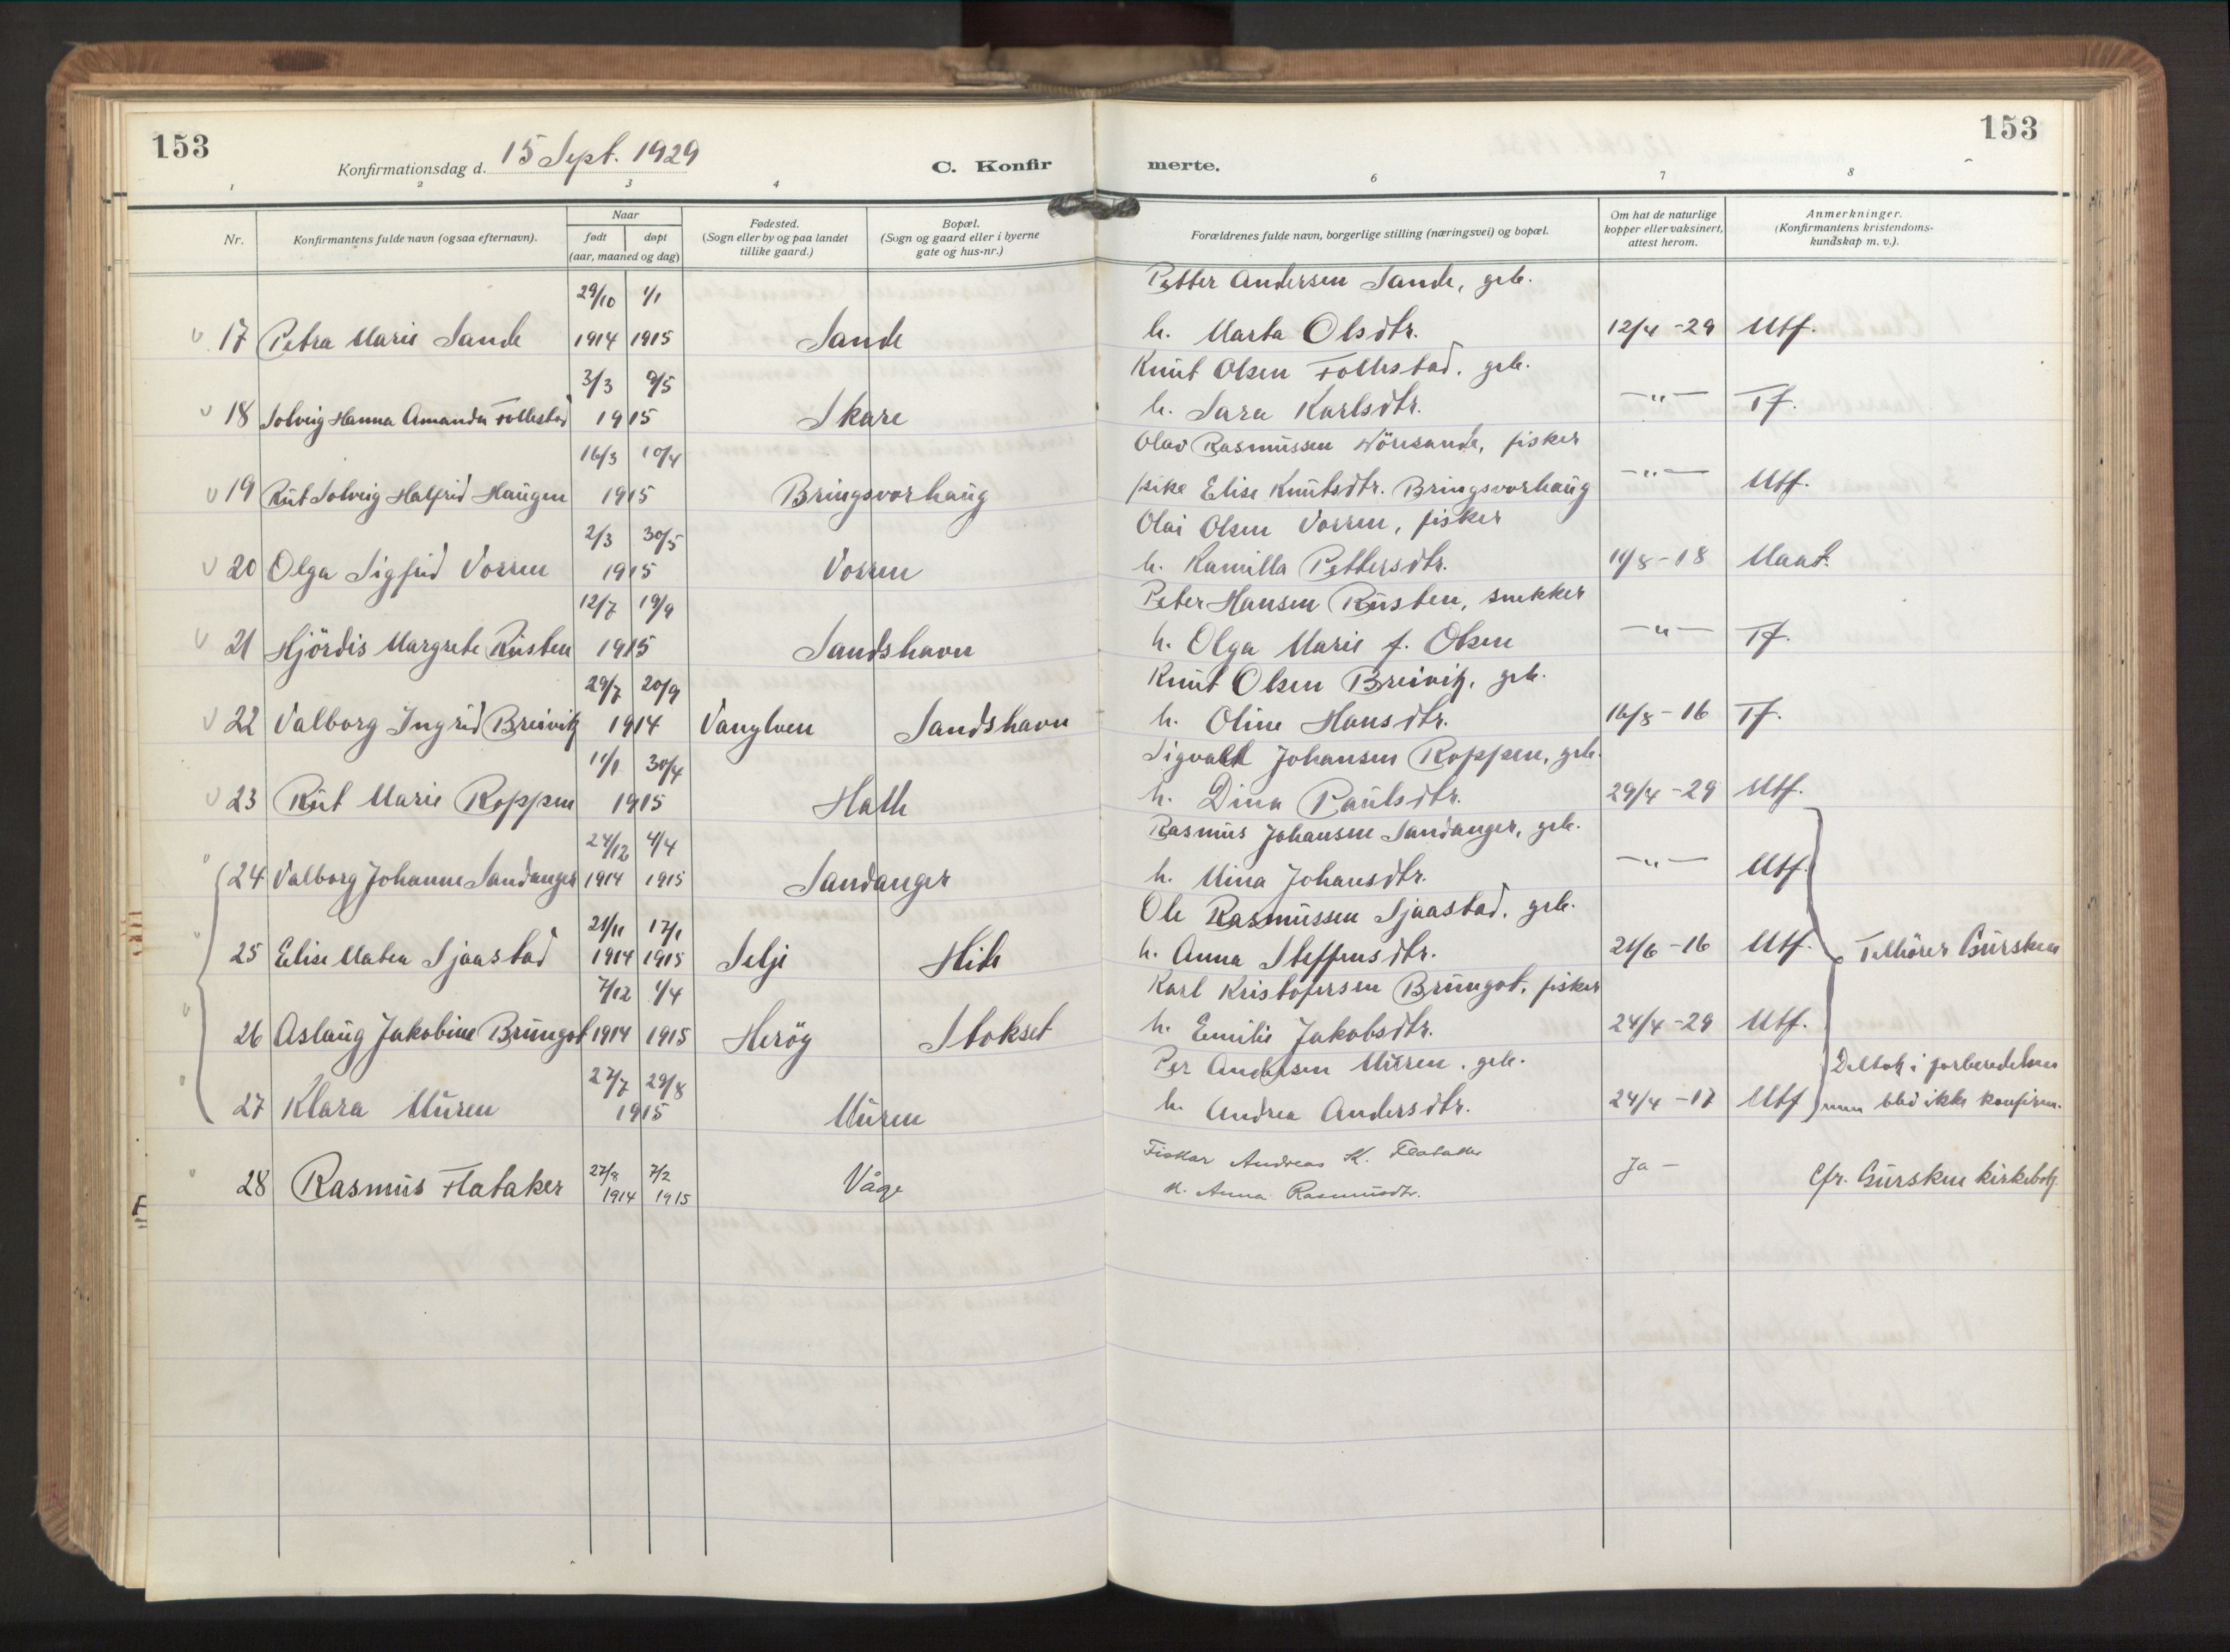 153
Konfirmationsdag d. 15 Sept. 1929
C. Konfir
merte.
153
1 2 3 4 6 7 8
Nr.
Konfirmantens fulde navn (ogsaa efternavn).
Naar
født døpt
(aar, maaned og dag)
Fødested.
(Sogn eller by og paa landet
tillike gaard.)
Bopæl.
(Sogn og gaard eller i byerne
gate og hus-nr.)
Forældrenes fulde navn, borgerlige stilling (næringsvei) og bopæl.
Om hat de naturlige
kopper eller vaksinert,
attest herom.
Anmerkninger.
(Konfirmantens kristendoms-
kundskap m. v.).
29/10 1/1 Petter Andersen Sande, grb.
17 Petra Marie Sande 1914 1915 Sande h. Marta Olsdtr. 12/4 -29 Mtf.
3/3 9/5 Knut Olsen Follestad, grb.
18 Solveig Hanna Amanda Follestad 1915 Skare h. Sara Karlsdtr. —"— Tf.
16/3 10/4 Olav Rasmussen Nöresande, fisker
19 Rut Solveig Halfrid Haugen 1915 Bringsvorhaug pike Elise Knutsdtr. Bringsvorhaug —"— Mtf.
2/3 30/5 Olai Olsen Vorren, fisker
20 Olga Sigfrid Vorren 1915 Vorren h. Kamilla Pettersdtr. 11/8 -18 Maat.
12/7 19/9 Peter Hansen Rusten, snekker
21 Hjördis Margrete Rusten 1915 Sandshavn h. Olga Marie f. Olsen —"— Tf.
29/7 20/9 Knut Olsen Breivik, grb.
22 Valborg Ingrid Breivik 1914 Vanylven Sandshavn h. Oline Hansdtr. 16/8 - 16 Tf.
11/1 30/4 Sigvald Johansen Roppen, grb.
23 Rut Marie Roppen 1915 Hatle h. Dina Paulsdtr. 29/4 -29 Mtf.
24/12 4/4 Rasmus Johansen Sandanger, grb.
24 Valborg Johanne Sandanger 1914 1915 Sandanger h. Mina Johansdtr. —"— Mtf.
21/11 17/1 Ole Rasmussen Sjaastad, grb.
25 Elise Matea Sjaastad 1914 1915 Selje Hide h. Anna Steffensdtr. 21/6 -16 Mtf. Tilhörer Gursken
7/12 1/4 Karl Kristofersen Brungot, fisker
26 Aslaug Jakobine Brungot 1914 1915 Heröy Stokset h. Emilie Jakobsdtr. 24/4 -29 Mtf.
27/7 29/8 Per Andersen Muren, grb. Deltok i forberedelsen
27 Klara Muren 1915 Muren h. Andrea Andersdtr. 24/4 -17 Mtf men blev ikke konfirm.
27/8 7/2 Fisker Andreas K. Flataker Ja -
28 Rasmus Flataker 1914 1915 Våge h. Anna Rasmusdtr. Cfr. Gursken kirkebok